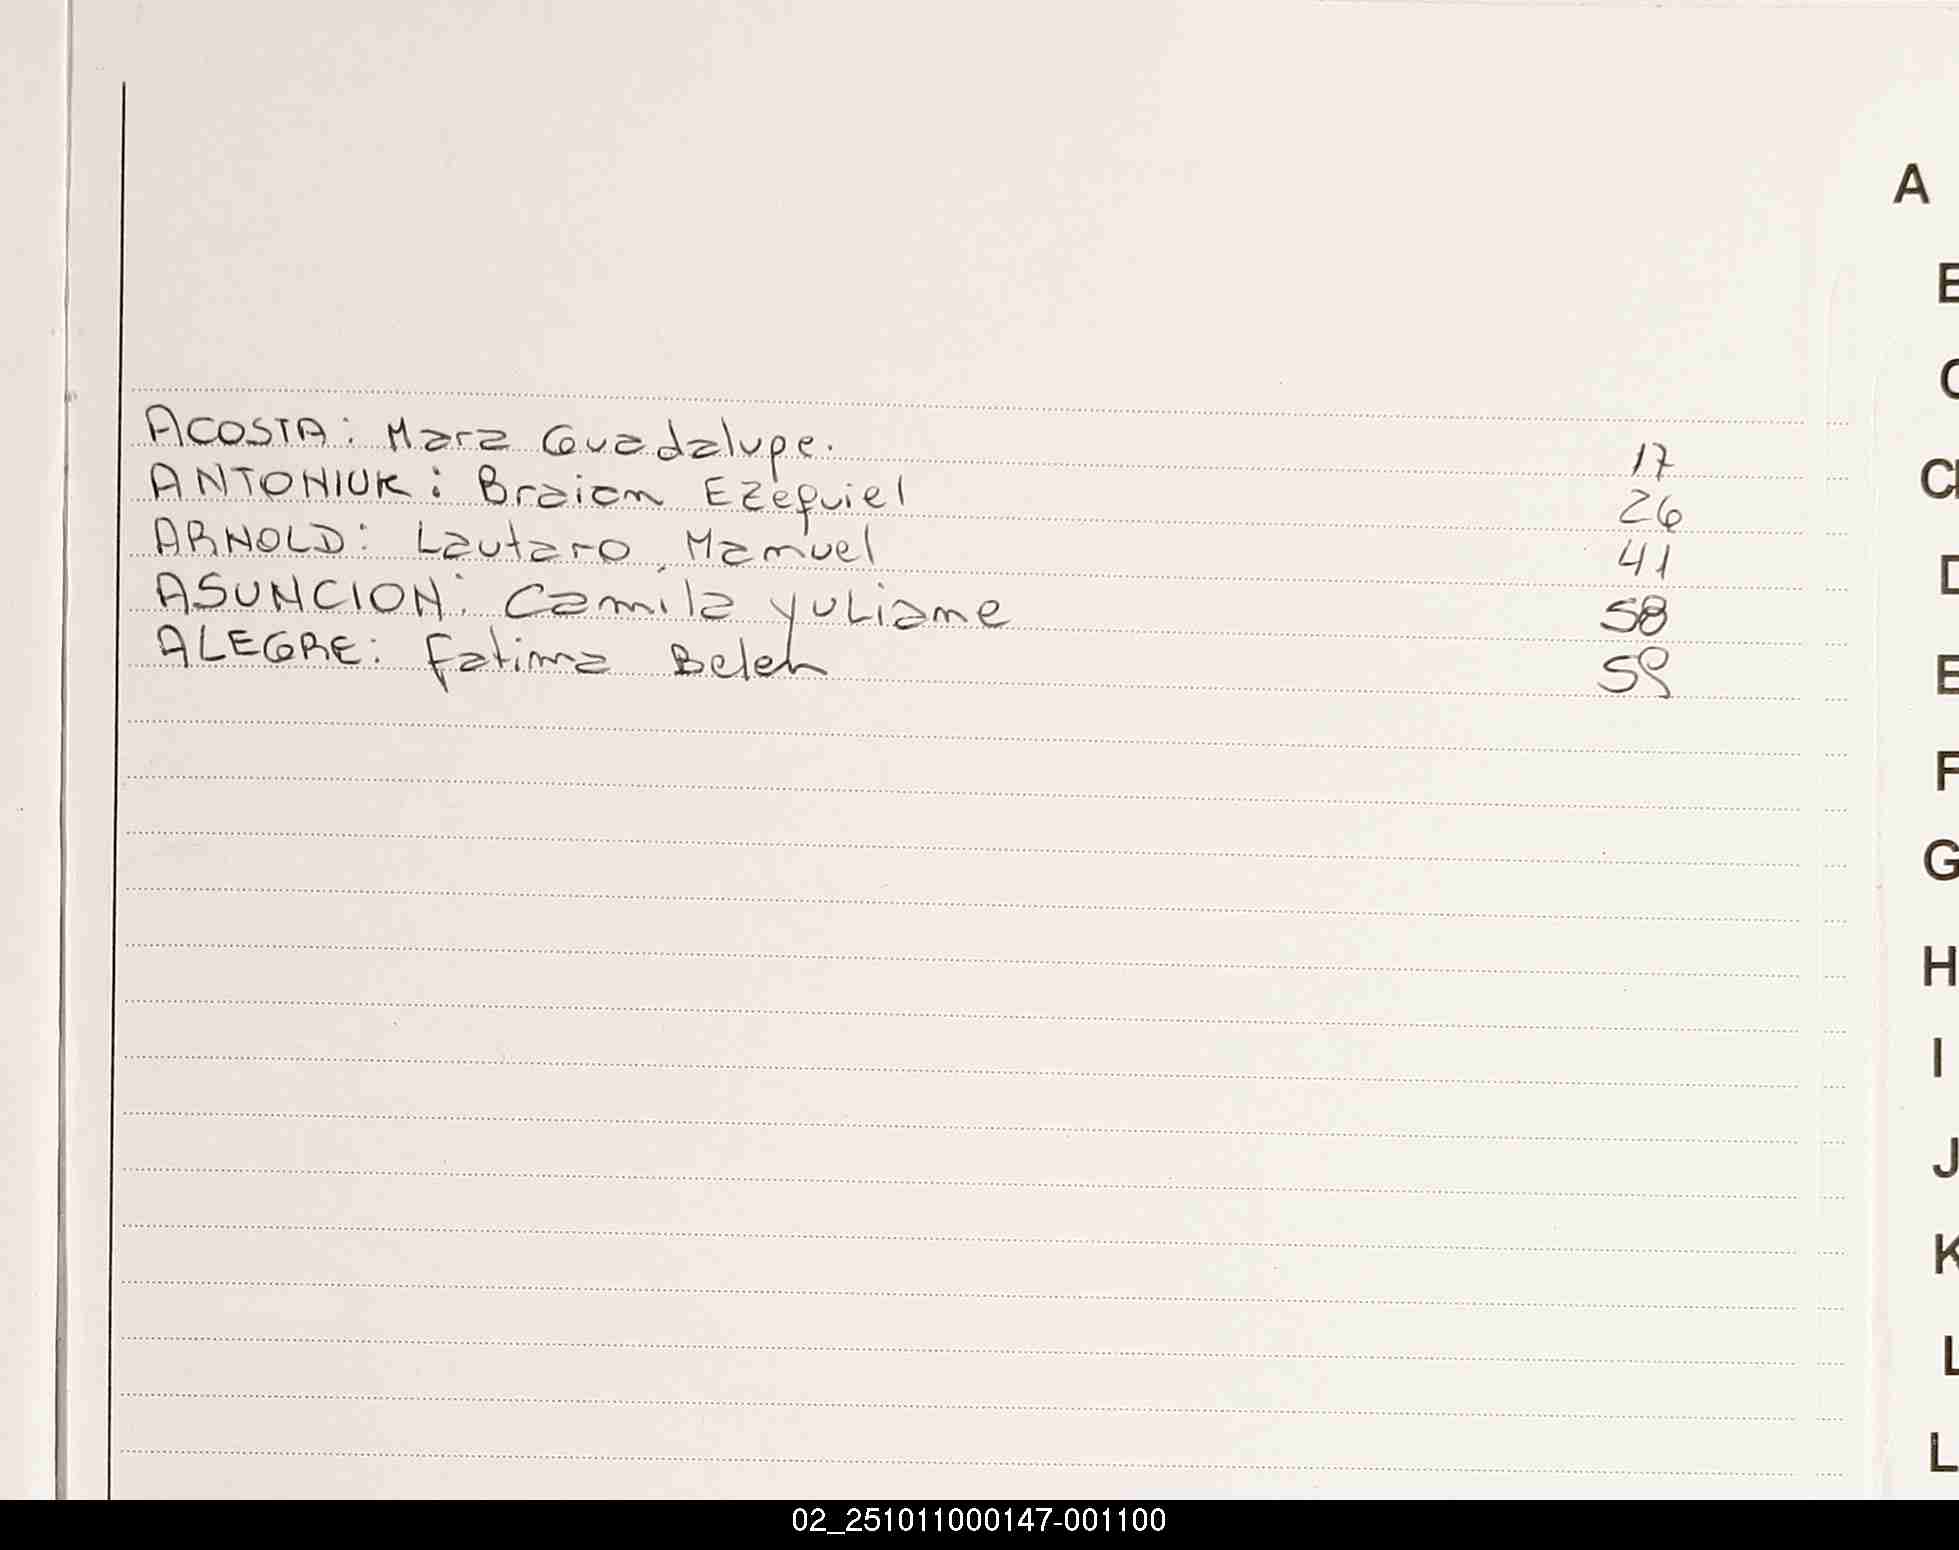 ACOSTA: Mara Guadalupe. 17
ANTONIUK: Braian Ezequiel 26
ARNOLD: Lautaro Manuel 41
ASUNCION: Camila Yuliane 58
ALEGRE: Fatima Belen 59
A
E
C
CH
D
E
F
G
H
I
J
K
L
L
02_251011000147-001100